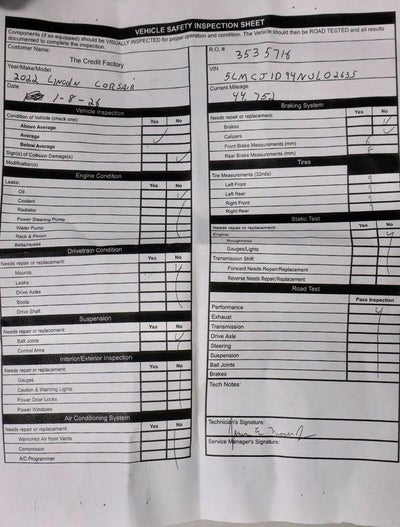 VEHICLE SAFETY INSPECTION SHEET
Components (if so equipped) should be VISUALLY INSPECTED for proper operation and condition. The Vehicle should then be ROAD TESTED and all results
documented to complete the inspection.
Customer Name:
The Credit Factory
Year/Make/Model
2022 LINCOLN CORSAIR
Date
1-8-26
Vehicle Inspection
Condition of Vehicle (check one): Yes No
Above Average
Average
Below Average
Sign(s) of Collision Damage(s)
Modification(s)
Engine Condition
Leaks: Yes No
Oil
Coolant
Radiator
Power Steering Pump
Water Pump
Rack & Pinion
Belts/Hoses
Drivetrain Condition
Needs repair or replacement: Yes No
Mounts
Leaks
Drive Axles
Boots
Drive Shaft
Suspension
Needs repair or replacement: Yes No
Ball Joints
Control Arms
Interior/Exterior Inspection
Needs repair or replacement: Yes No
Gauges
Caution & Warning Lights
Power Door Locks
Power Windows
Air Conditioning System
Needs repair or replacement: Yes No
Warm/Hot Air from Vents
Compressor
A/C Programmer
R.O.#
3535716
VIN
5LMCJ1D94NUL02635
Current Mileage
44,752
Braking System
Needs repair or replacement: Yes No
Brakes
Calipers
Front Brake Measurements (mm)
Rear Brake Measurements (mm)
Tires
Tire Measurements (32nds)
Left Front 9
Left Rear 9
Right Front 9
Right Rear
Static Test
Needs repair or replacement: Yes No
Engine:
Roughness
Gauges/Lights
Transmission Shift:
Forward Needs Repair/Replacement
Reverse Needs Repair/Replacement
Road Test
Pass Inspection
Performance
Exhaust
Transmission
Drive Axle
Steering
Suspension
Ball Joints
Brakes
Tech Notes:
Technician's Signature:
Service Manager's Signature: